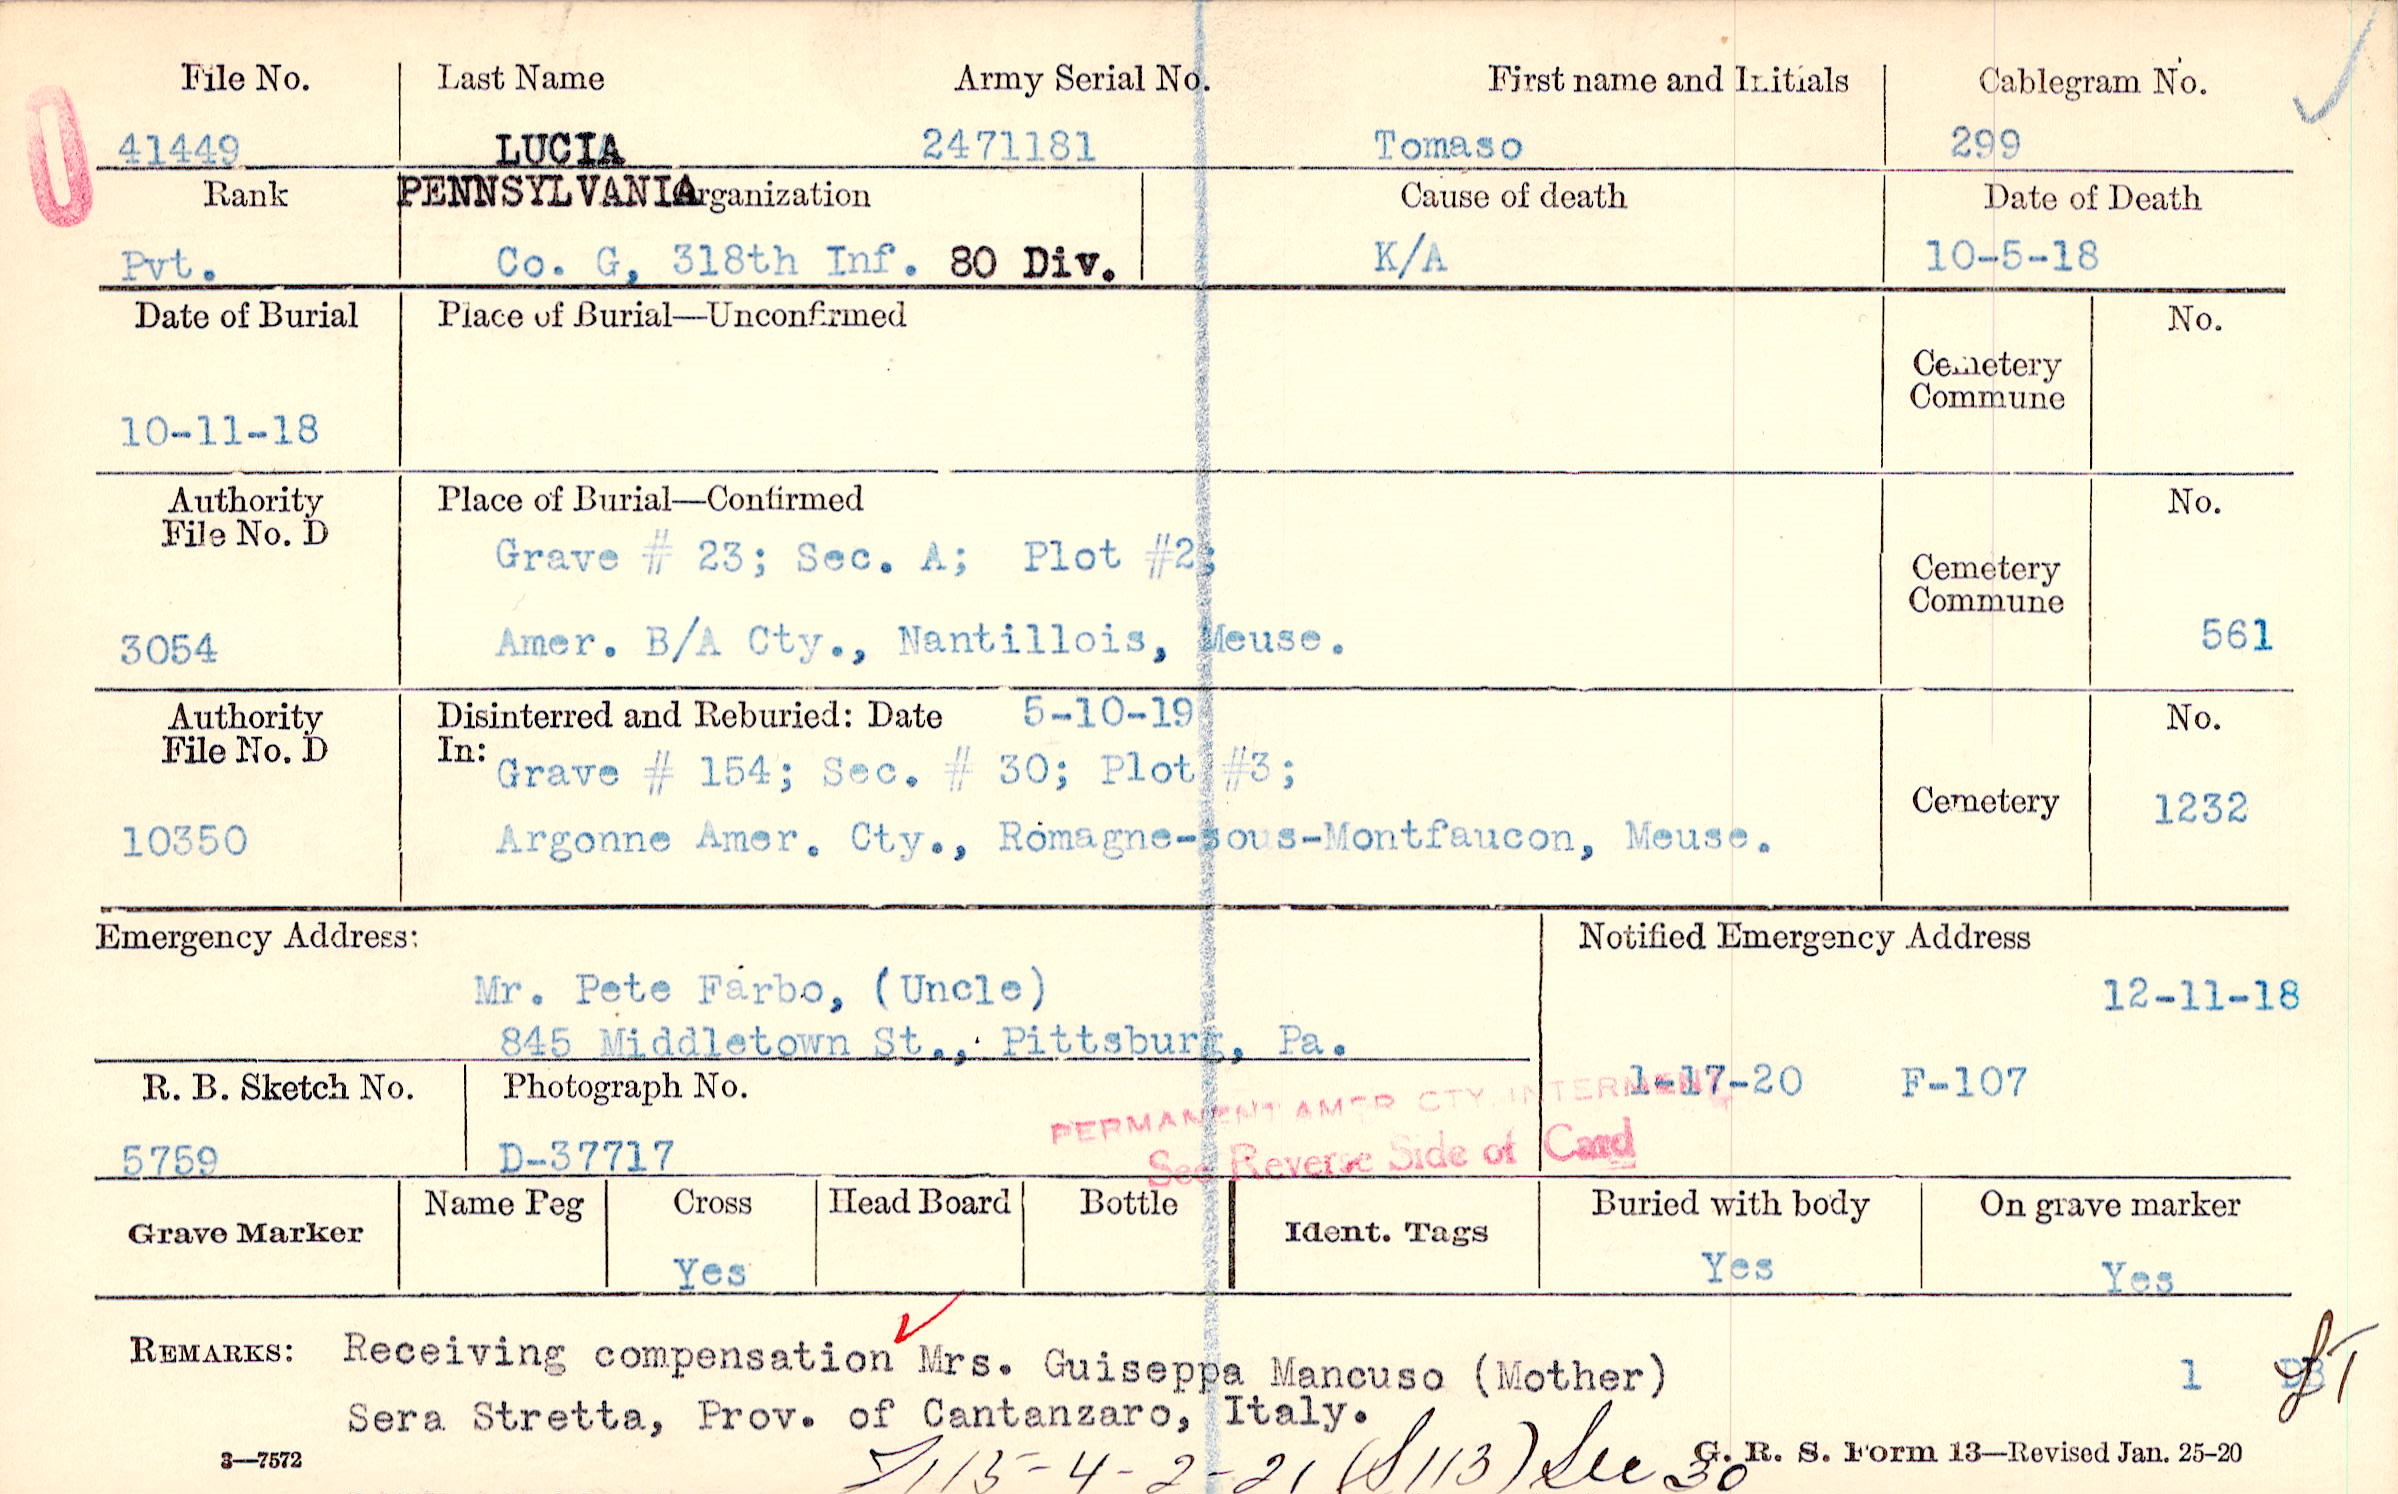 File No. Last Name Army Serial No. First name and Initials Cablegram No.
41449 LUCIA 2471181 Tomaso 299
Rank PENNSYLVANIA Organization Cause of death Date of Death
Pvt. Co. G, 318th Inf. 80 Div. K/A 10-5-18
Date of Burial Place of Burial—Unconfirmed No.
Cemetery
Commune
10-11-18
Authority Place of Burial—Confirmed No.
File No. D
Grave # 23; Sec. A; Plot #2;
Cemetery
Commune
3054 Amer. B/A Cty., Nantillois, Meuse. 561
Authority Disinterred and Reburied: Date 5-10-19 No.
File No. D In:
Grave # 154; Sec. # 30; Plot #3;
Cemetery 1232
10350 Argonne Amer. Cty., Romagne-sous-Montfaucon, Meuse.
Emergency Address: Notified Emergency Address
Mr. Pete Farbo, (Uncle) 12-11-18
845 Middletown St., Pittsburg, Pa.
R. B. Sketch No. Photograph No. 1-17-20 F-107
PERMANENT AMER CTY. INTERMENT
See Reverse Side of Card
5759 D-37717
Grave Marker Name Peg Cross Head Board Bottle Ident. Tags Buried with body On grave marker
Yes Yes Yes
REMARKS: Receiving compensation Mrs. Guiseppa Mancuso (Mother) 1
Sera Stretta, Prov. of Cantanzaro, Italy.
4-2-21 (S113) See 30
3—7572 G. R. S. Form 13—Revised Jan. 25-20